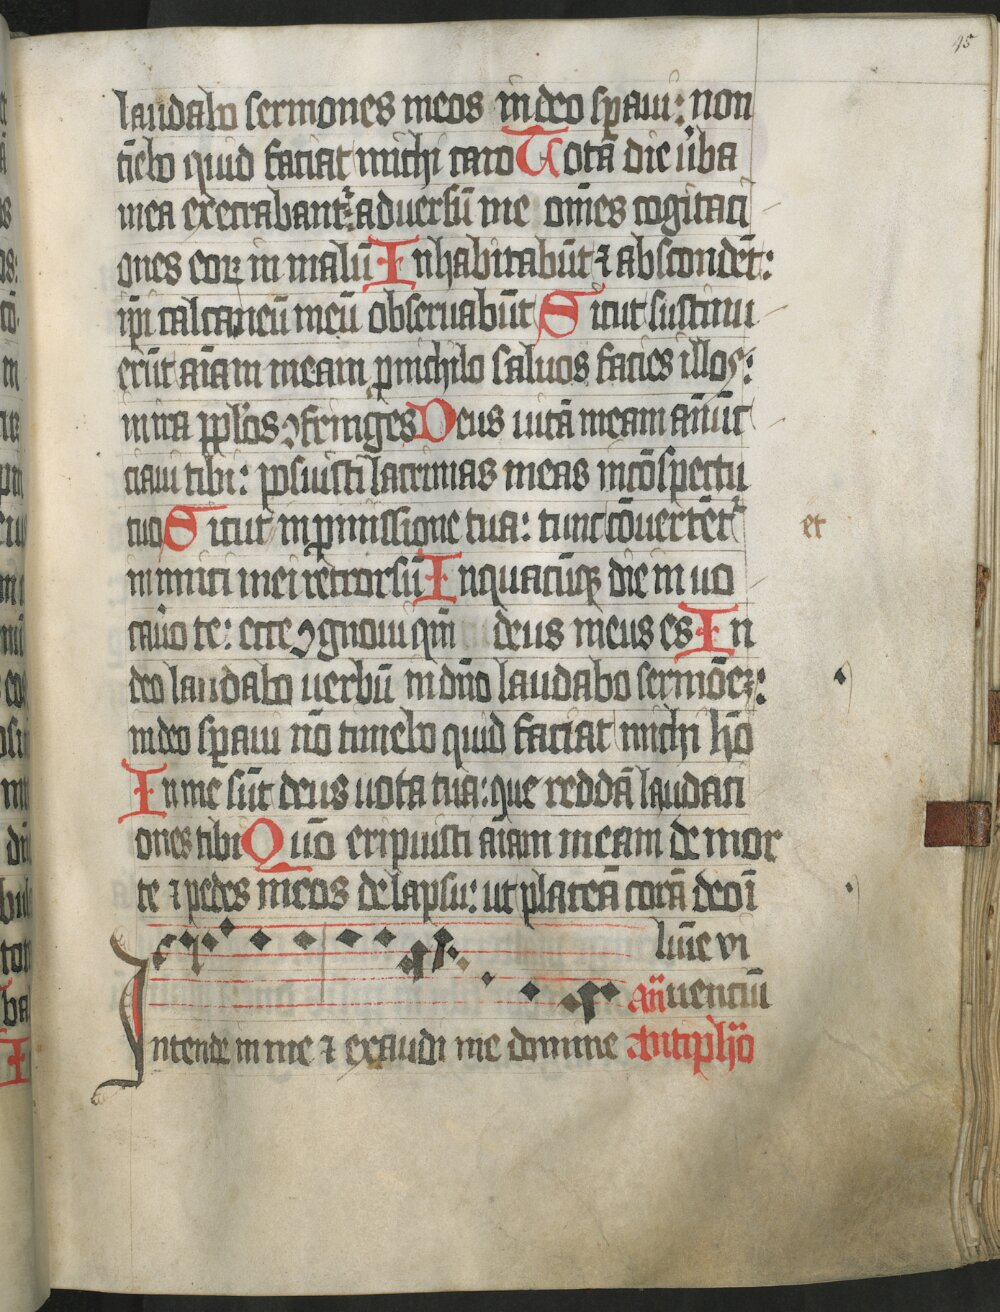 45
laudabo sermones meos in deo spaui: non
timebo quid faciat michi caro Tota die uba
mea execrabantr: aduersū me omēs cogitaci
ones eorꝝ in malū Inhabitabūt ⁊ abscondēt:
ipi calcaneū meū obseruabūt Sicut sustinu
erūt aīam meam ꝓ nichilo saluos facies illos:
in ira ppłos ꝯfringes Deus uitā meam anūt
ciaui tibi: posuisti lacrimas meas in cōspectu
tuo Sicut in ꝓmissione tua: tunc cōuertētr
et
inimici mei retrorsū In quacūqꝫ die in uo
cauo te: ecce ꝯgnoui qm̄ deus meus es In
deo laudabo uerbū in dn̄o laudabo sermōeꝫ:
in deo spaui nō timebo quid faciat michi hō
In me sūt deus uota tua: que reddā laudati
ones tibi Quō eripuisti aīam meam de mor
te ⁊ pedes meos de lapsu: ut placeā corā deo ī
lūīe vi
an̄ uenciū
Intende in me ⁊ exaudi me domine antiphō